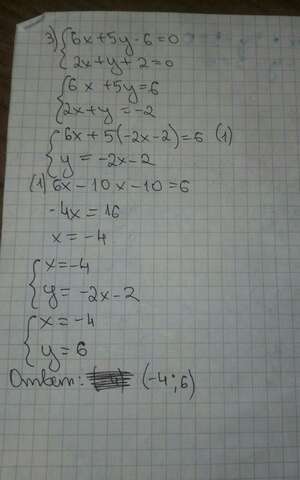 3) { 6x+5y-6=0
2x+y+2=0
{ 6x+5y=6
2x+y=-2
{ 6x+5(-2x-2)=6 (1)
y=-2x-2
(1) 6x-10x-10=6
-4x=16
x=-4
{ x=-4
y=-2x-2
{ x=-4
y=6
Ответ: (-4;6)